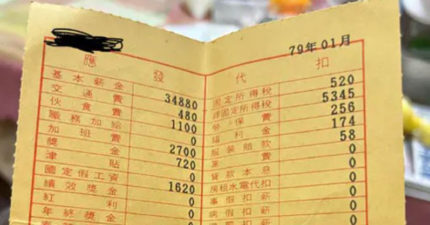 79年01月
應發 代扣
基本薪金 34880 固定所得稅 520
交通費 480 非固定所得稅 5345
伙食費 1100 勞保費 256
職務加給 0 福利金 174
加班費 2700 服裝賠款 58
獎金 720 費 0
津貼 0 貸款本息 0
國定假工資 1620 房租水電代扣 0
績效獎金 0 事假扣薪 0
紅利 0 病假扣薪 0
年終獎金 0 扣薪 0